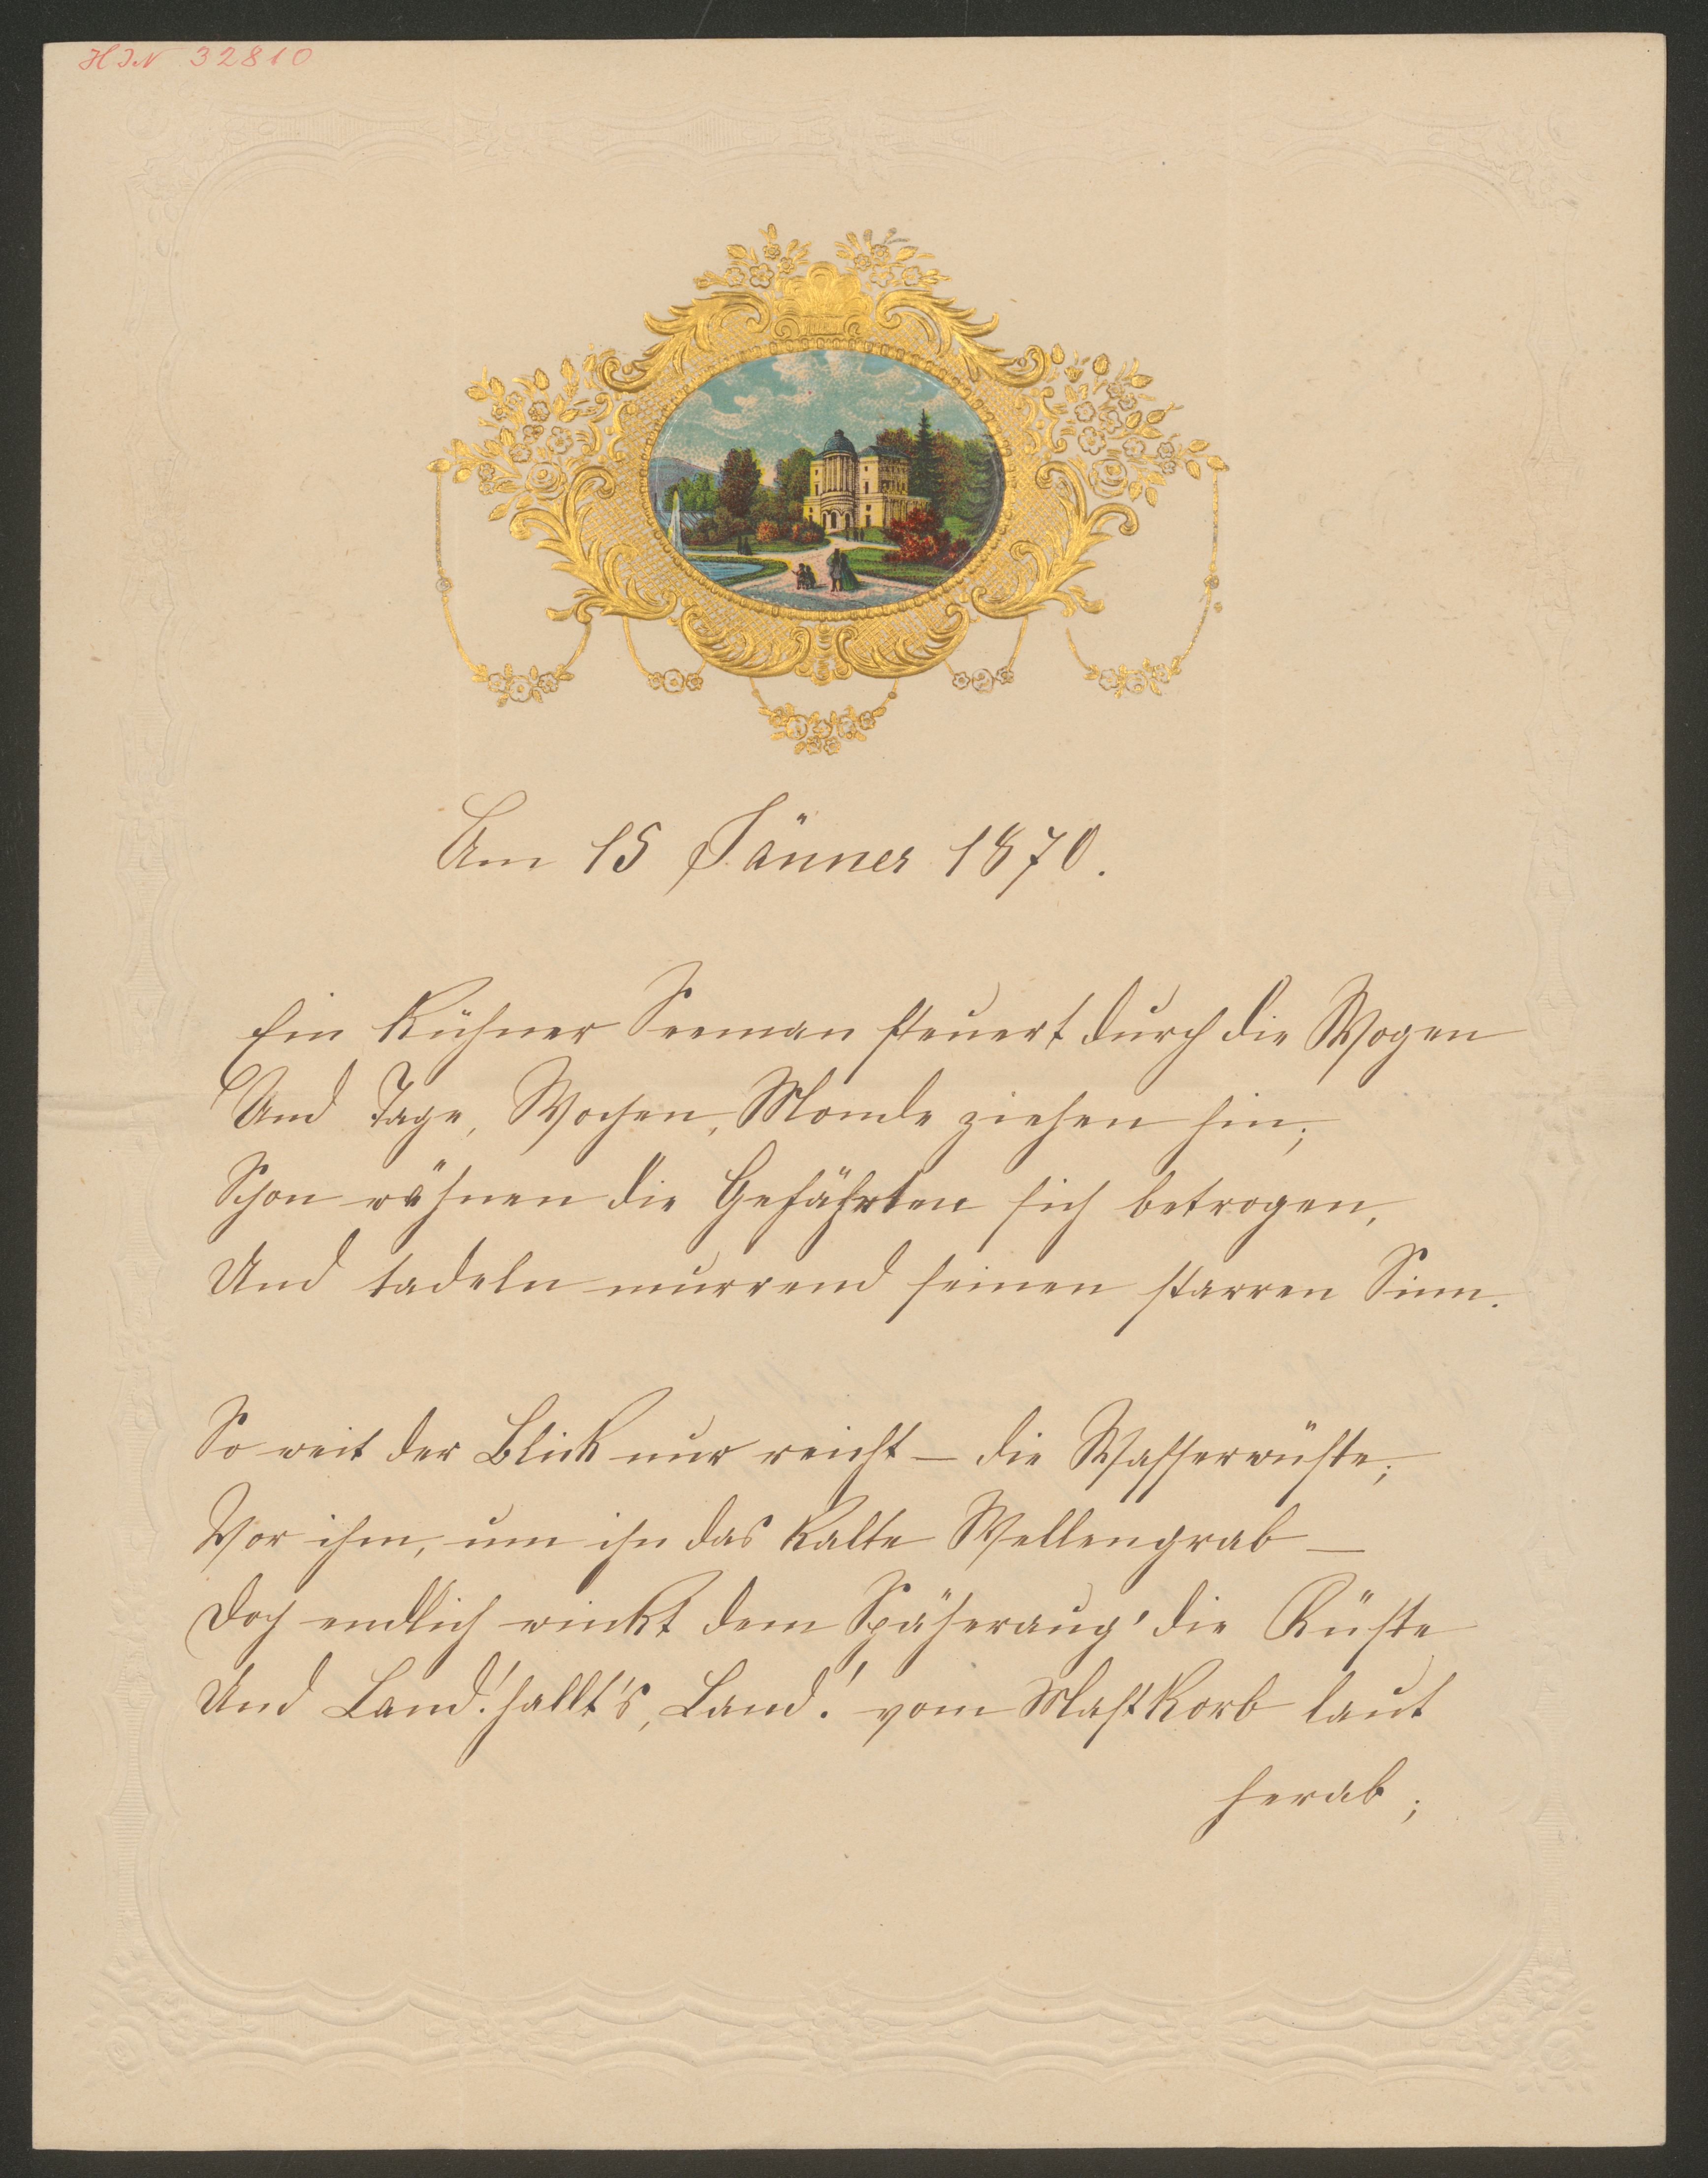 HIN 32810
Am 15 Jänner 1870.
Ein kühner Seeman steuert durch die Wogen
Und Tage, Wochen, Monde ziehen hin;
Schon wähnen die Gefährten sich betrogen,
Und tadeln murrend seinen starren Sinn.
So weit der Blick nur reicht – die Wasserwüste;
Vor ihm, um ihn das kalte Wellengrab –
Doch endlich winkt dem Späheraug' die Küste
Und Land! hallt's, Land! vom Mastkorb laut
herab;